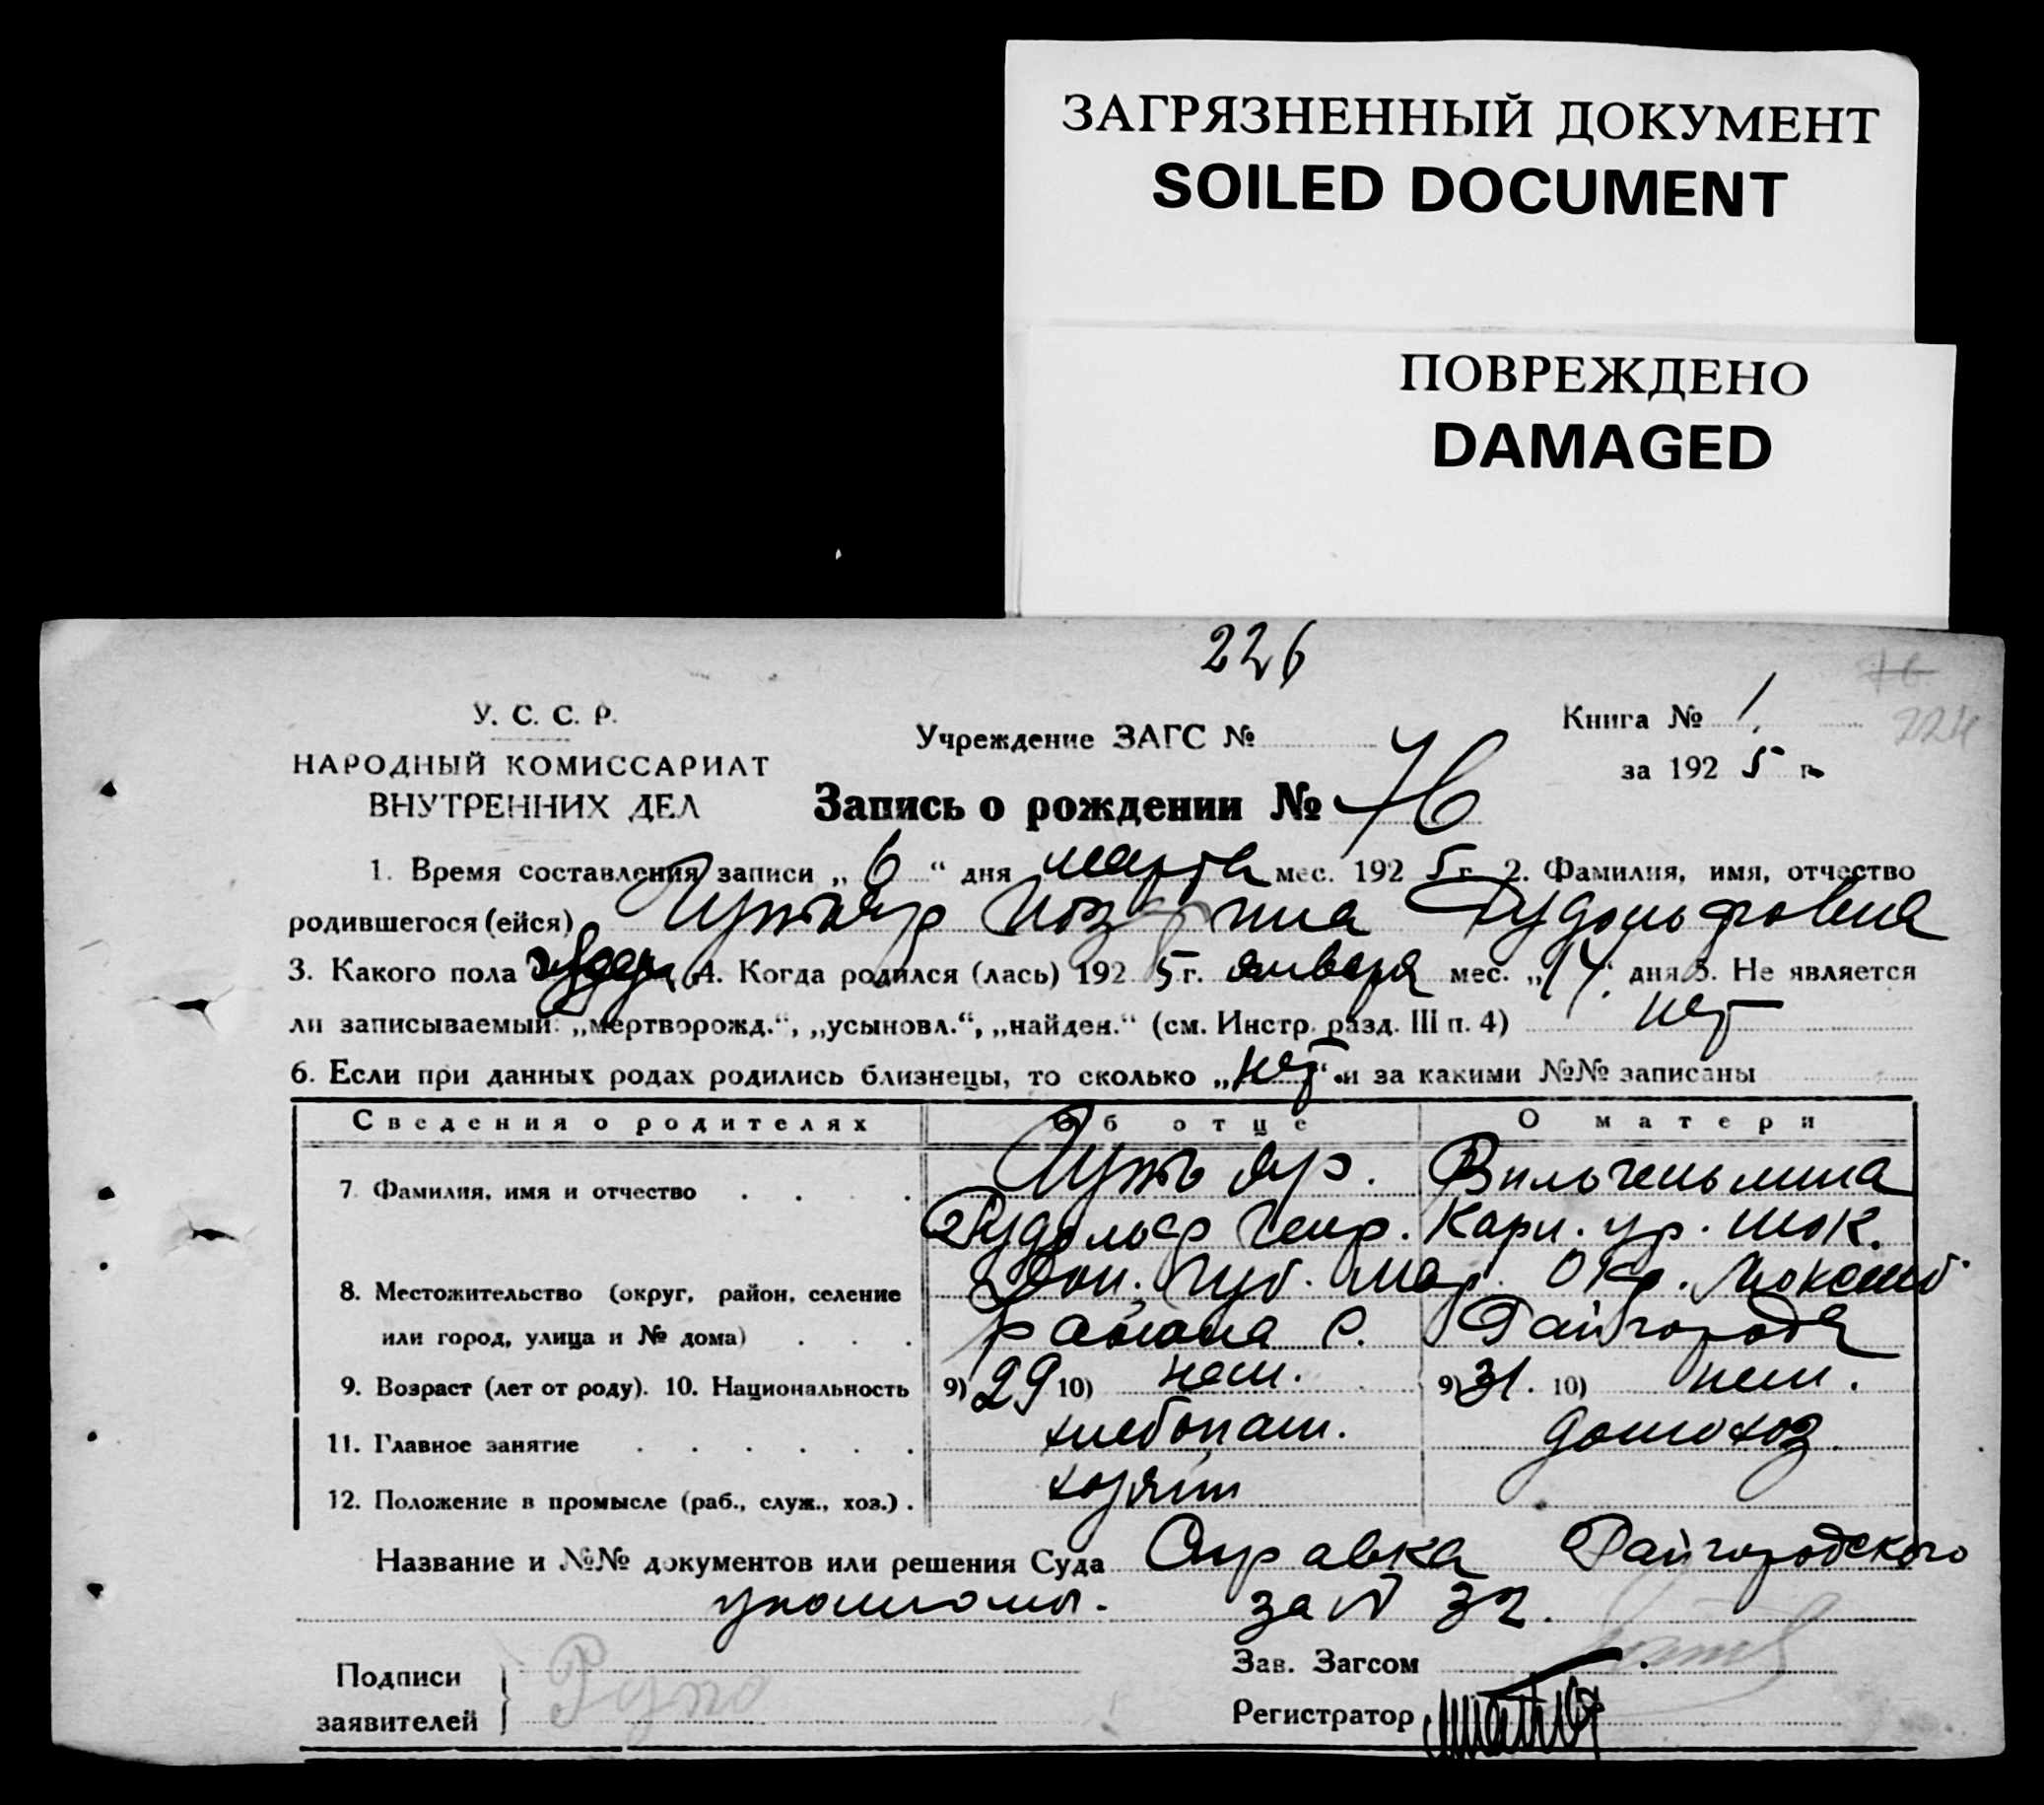 ЗАГРЯЗНЕННЫЙ ДОКУМЕНТ
SOILED DOCUMENT
ПОВРЕЖДЕНО
DAMAGED
226
76
224
У. С. С. Р.
НАРОДНЫЙ КОМИССАРИАТ
ВНУТРЕННИХ ДЕЛ
Учреждение ЗАГС №
Книга № 1
за 192 5 г.
Запись о рождении № 76
1. Время составления записи „ 6 “ дня марта мес. 192 5 г. 2. Фамилия, имя, отчество
родившегося (ейся) Рудольфовна
3. Какого пола 4. Когда родился (лась) 192 5 г. января мес. „14“ дня 5. Не является
ли записываемый: „мертворожд.“, „усыновл.“, „найден.“ (см. Инстр. разд. III п. 4) нет
6. Если при данных родах родились близнецы, то сколько „нет“ и за какими №№ записаны
Сведения о родителях Об отце О матери
7. Фамилия, имя и отчество . . . . Вильгельмина
Рудольф Генр. Карл. ур. Шок.
8. Местожительство (округ, район, селение Дон. Губ. Мар. Окр.
или город, улица и № дома) . . . района с. Райгорода
9. Возраст (лет от роду). 10. Национальность 9) 29 10) нем. 9) 31. 10) нем.
11. Главное занятие . . . . . . хлебопаш. домохоз.
12. Положение в промысле (раб., служ., хоз.) . хозяин
Название и №№ документов или решения Суда Справка Райгородского
за № 32.
Подписи
заявителей
Зав. Загсом
Регистратор